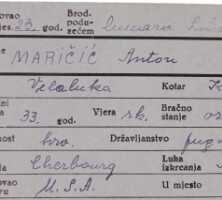 ovao
jes. 23. god. Brod. podu- zećem
me MARIČIĆ Anton
Velaluka Kotar K
33. god. Vjera rk. Bračno stanje
nost hrv. Državljanstvo jugo
Cherbourg Luka iskrcanja
ovao U.S.A. U mjesto